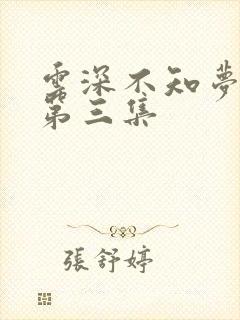 雲深不知夢
第三集
張舒婷